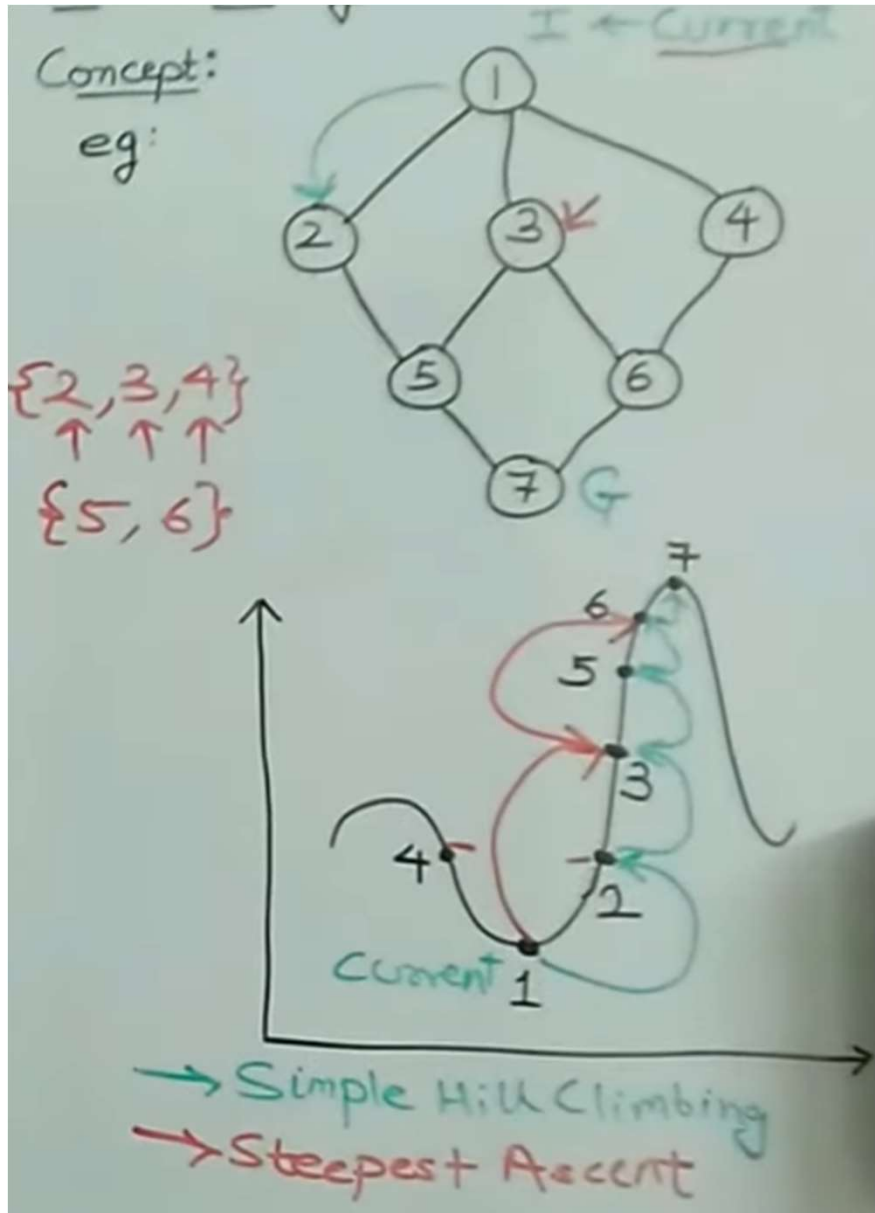 I ← Current
Concept:
eg:
1
2 3 4
{2,3,4}
5 6
{5,6}
7 G
7
6
5
3
4
2
Current 1
→ Simple Hill Climbing
→ Steepest Ascent